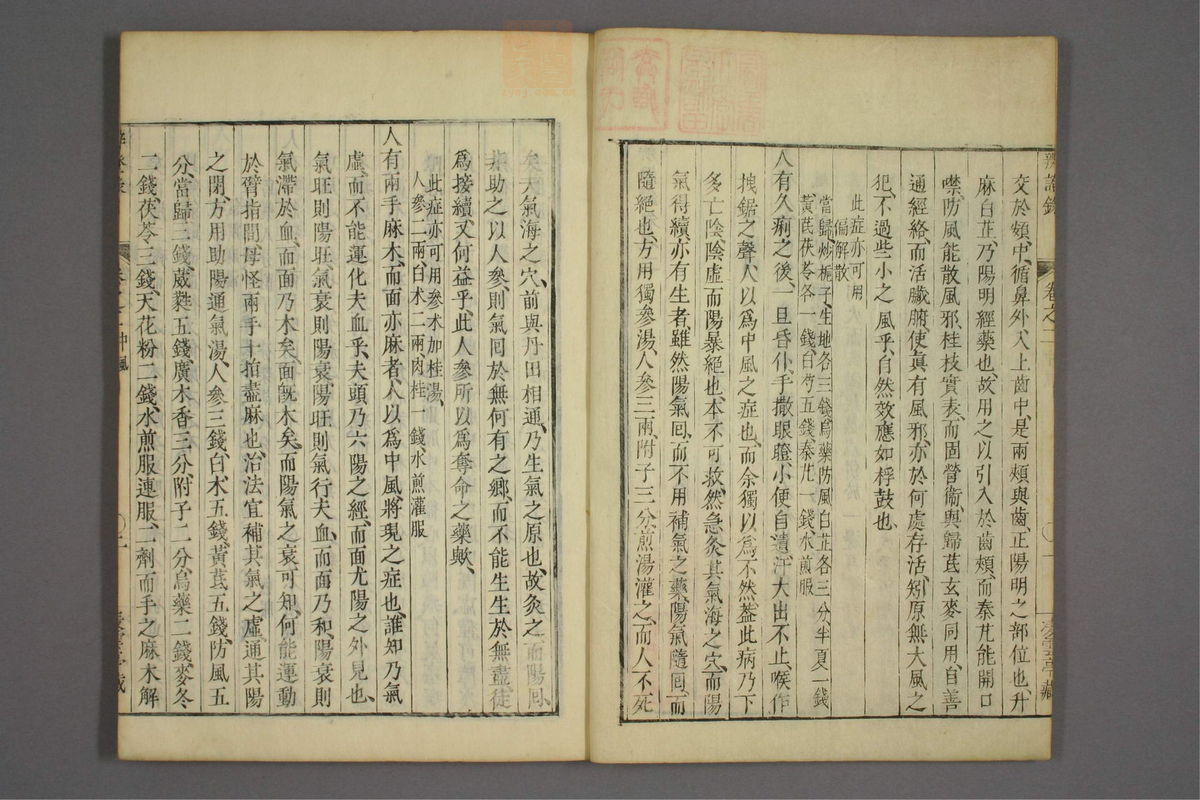 辨證錄 卷之二
交於頞中、循鼻外、入上齒中、是兩頰與齒、正陽明之部位也、升
麻白芷、乃陽明經藥也、故用之以引入於齒頰、而秦艽能開口
噤、防風能散風邪、桂枝實表、而固營衞、與歸芪玄麥同用、自善
通經絡、而活臟腑、使眞有風邪、亦於何處存活、矧原無大風之
犯、不過些小之風乎、自然效應如桴鼓也、
此症亦可用
偏解散
當歸、炒梔子、生地各三錢、烏藥防風白芷各三分、半夏一錢
黃芪茯苓各一錢白芍五錢秦艽一錢水煎服
人有久痢之後、一旦昏仆、手撒眼瞪、小便自遺、汗大出不止、喉作
拽鋸之聲、人以爲中風之症也、而余獨以爲不然、葢此病乃下
多亡陰、陰虛而陽暴絕也、本不可救、然急灸其氣海之穴、而陽
氣得續、亦有生者、雖然陽氣囘、而不用補氣之藥、陽氣隨囘、而
隨絕也、方用獨參湯、人參三兩、附子三分、煎湯灌之、而人不死
矣、夫氣海之穴、前與丹田相通、乃生氣之原也、故灸之、而陽囘、
非助之以人參、則氣囘於無何有之鄉、而不能生生於無盡、徒
爲接續、又何益乎、此人參所以爲奪命之藥歟、
此症亦可用參朮加桂湯、
人參二兩、白朮二兩、肉桂一錢、水煎灌服
人有兩手麻木、而面亦麻者、人以爲中風將現之症也、誰知乃氣
虛、而不能運化夫血乎、夫頭乃六陽之經、而面尤陽之外見也、
氣旺則陽旺、氣衰則陽衰、陽旺則氣行夫血、而面乃和、陽衰則
氣滯於血、而面乃木矣、面旣木矣、而陽氣之衰、可知、何能運動
於臂指間、毋怪兩手十指盡麻也、治法宜補其氣之虛、通其陽
之閉、方用助陽通氣湯、人參三錢、白朮五錢、黃芪五錢、防風五
分、當歸三錢、葳蕤五錢、廣木香三分附子二分、烏藥二錢、麥冬
二錢、茯苓三錢、天花粉二錢、水煎服連服、二劑而手之麻木解